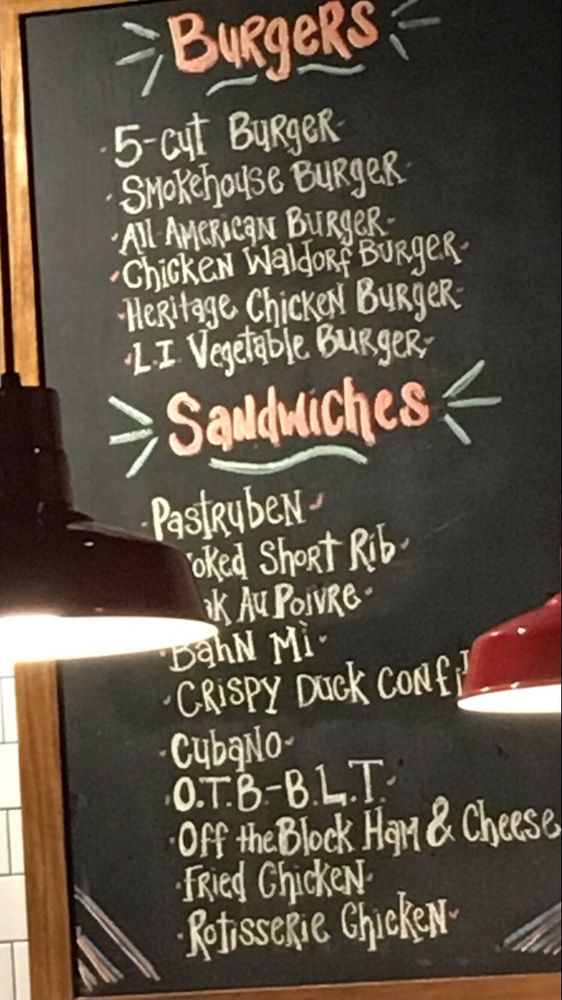 Burgers
5-Cut Burger
Smokehouse Burger
All American Burger
Chicken Waldorf Burger
Heritage Chicken Burger
L.I Vegetable Burger
Sandwiches
Pastruben
Short Rib
Au Poivre
Bahn Mì
Crispy Duck
Cubano
O.T.B-B.L.T.
Off the Block Ham & Cheese
Fried Chicken
Rotisserie Chicken